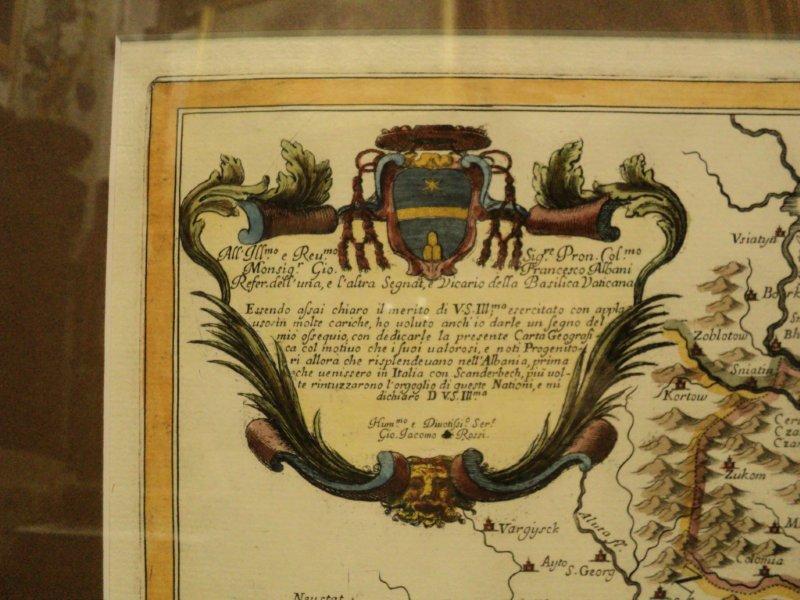 All'Ill.mo e Reu.mo Sig.re Pron. Col.mo
Monsig.r Gio. Francesco Albani
Refer. dell'una, e l'altra Segnat, e Vicario della Basilica Vaticana
Essendo assai chiaro il merito di V.S. Ill.ma esercitato con appla
uso in molte cariche, ho voluto anch'io darle un segno del
mio ossequio, con dedicarle la presente Carta Geografi
ca col motivo che i suoi valorosi, e noti Progenito
ri allora che risplendevano nell'Albania, prima
che venissero in Italia con Scanderbech, più vol
te rintuzzarono l'orgoglio di queste Nationi, e mi
dichiaro D V.S. Ill.ma
Hum.mo e Diuotiss.o Ser.r
Gio. Jacomo Rossi.
Vsiatyn
Zoblotow
Sniatin
Kortow
Zukom
Vargijsck
Aluta fl.
Ayto
S. Georg
Colonia
Neustat